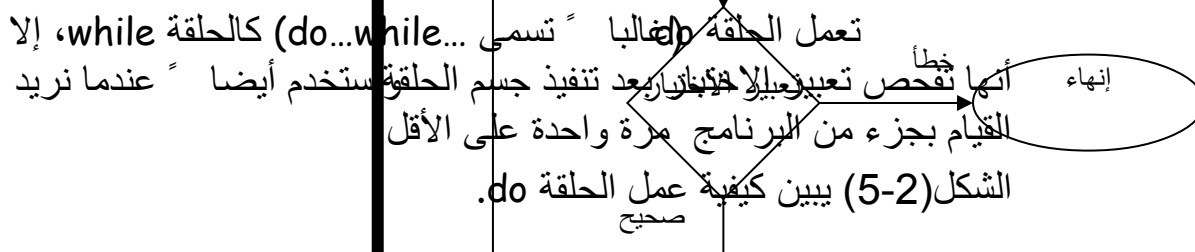 تعمل الحلقة do (غالباً تسمى ...do…while) كالحلقة while، إلا
أنها تفحص تعبير الاختبار بعد تنفيذ جسم الحلقة وتستخدم أيضاً عندما نريد
القيام بجزء من البرنامج مرة واحدة على الأقل
الشكل(2-5) يبين كيفية عمل الحلقة do.
تعبير الاختبار
خطأ
إنهاء
صحيح